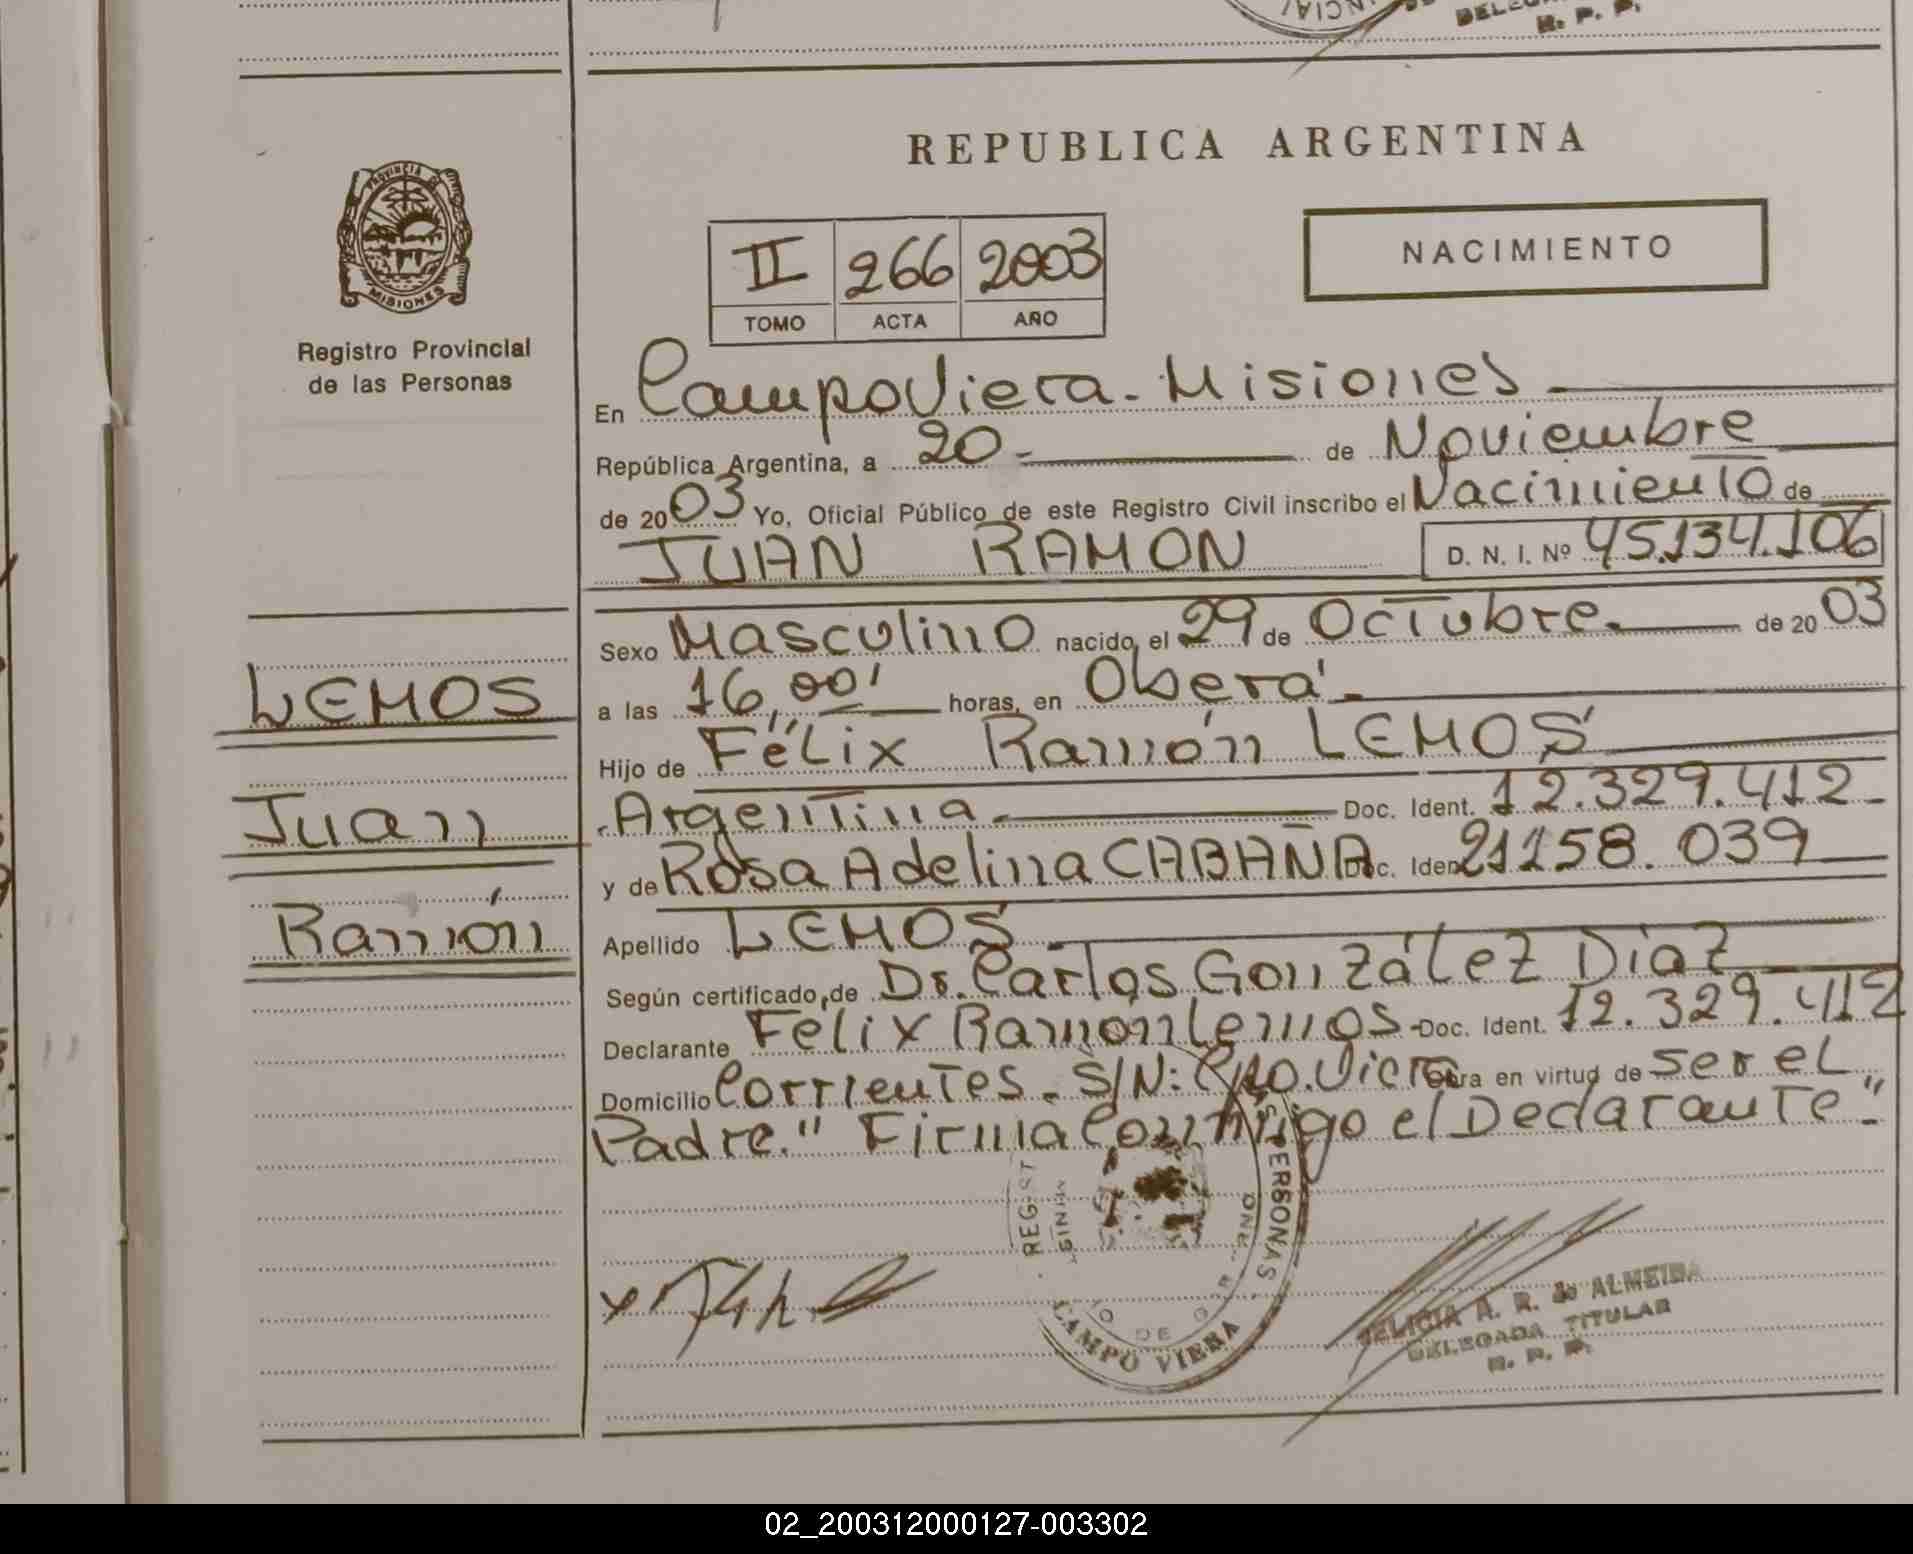 DELEG
R. P. P.
REPUBLICA ARGENTINA
PROVINCIA DE
MISIONES
II 266 2003
TOMO ACTA AÑO
NACIMIENTO
Registro Provincial
de las Personas
En CampoViera - Misiones
República Argentina, a 20 - de Noviembre
de 2003 Yo, Oficial Público de este Registro Civil inscribo el Nacimiento de
JUAN RAMON D. N. I. Nº 45.134.106
Sexo Masculino nacido el 29 de Octubre. de 2003
a las 16,00' horas, en Oberá -
LEMOS
Hijo de Félix Ramón LEMOS
.Argentina. Doc. Ident. 12.329.412 -
Juan
y de Rosa Adelina CABAÑA Doc. Ident 21158.039
Ramón
Apellido LEMOS -
Según certificado de Dr. Carlos González Diaz
Declarante Félix Ramón Lemos - Doc. Ident. 12.329.412
Domicilio Corrientes - S/N: Cpo. Viera Obra en virtud de ser el
Padre." Firma Conmigo el Declarante".
REGIST PERSONAS
CAMPO VIERA
FELICIA A. R. de ALMEIDA
DELEGADA TITULAR
R. P. P.
02_200312000127-003302